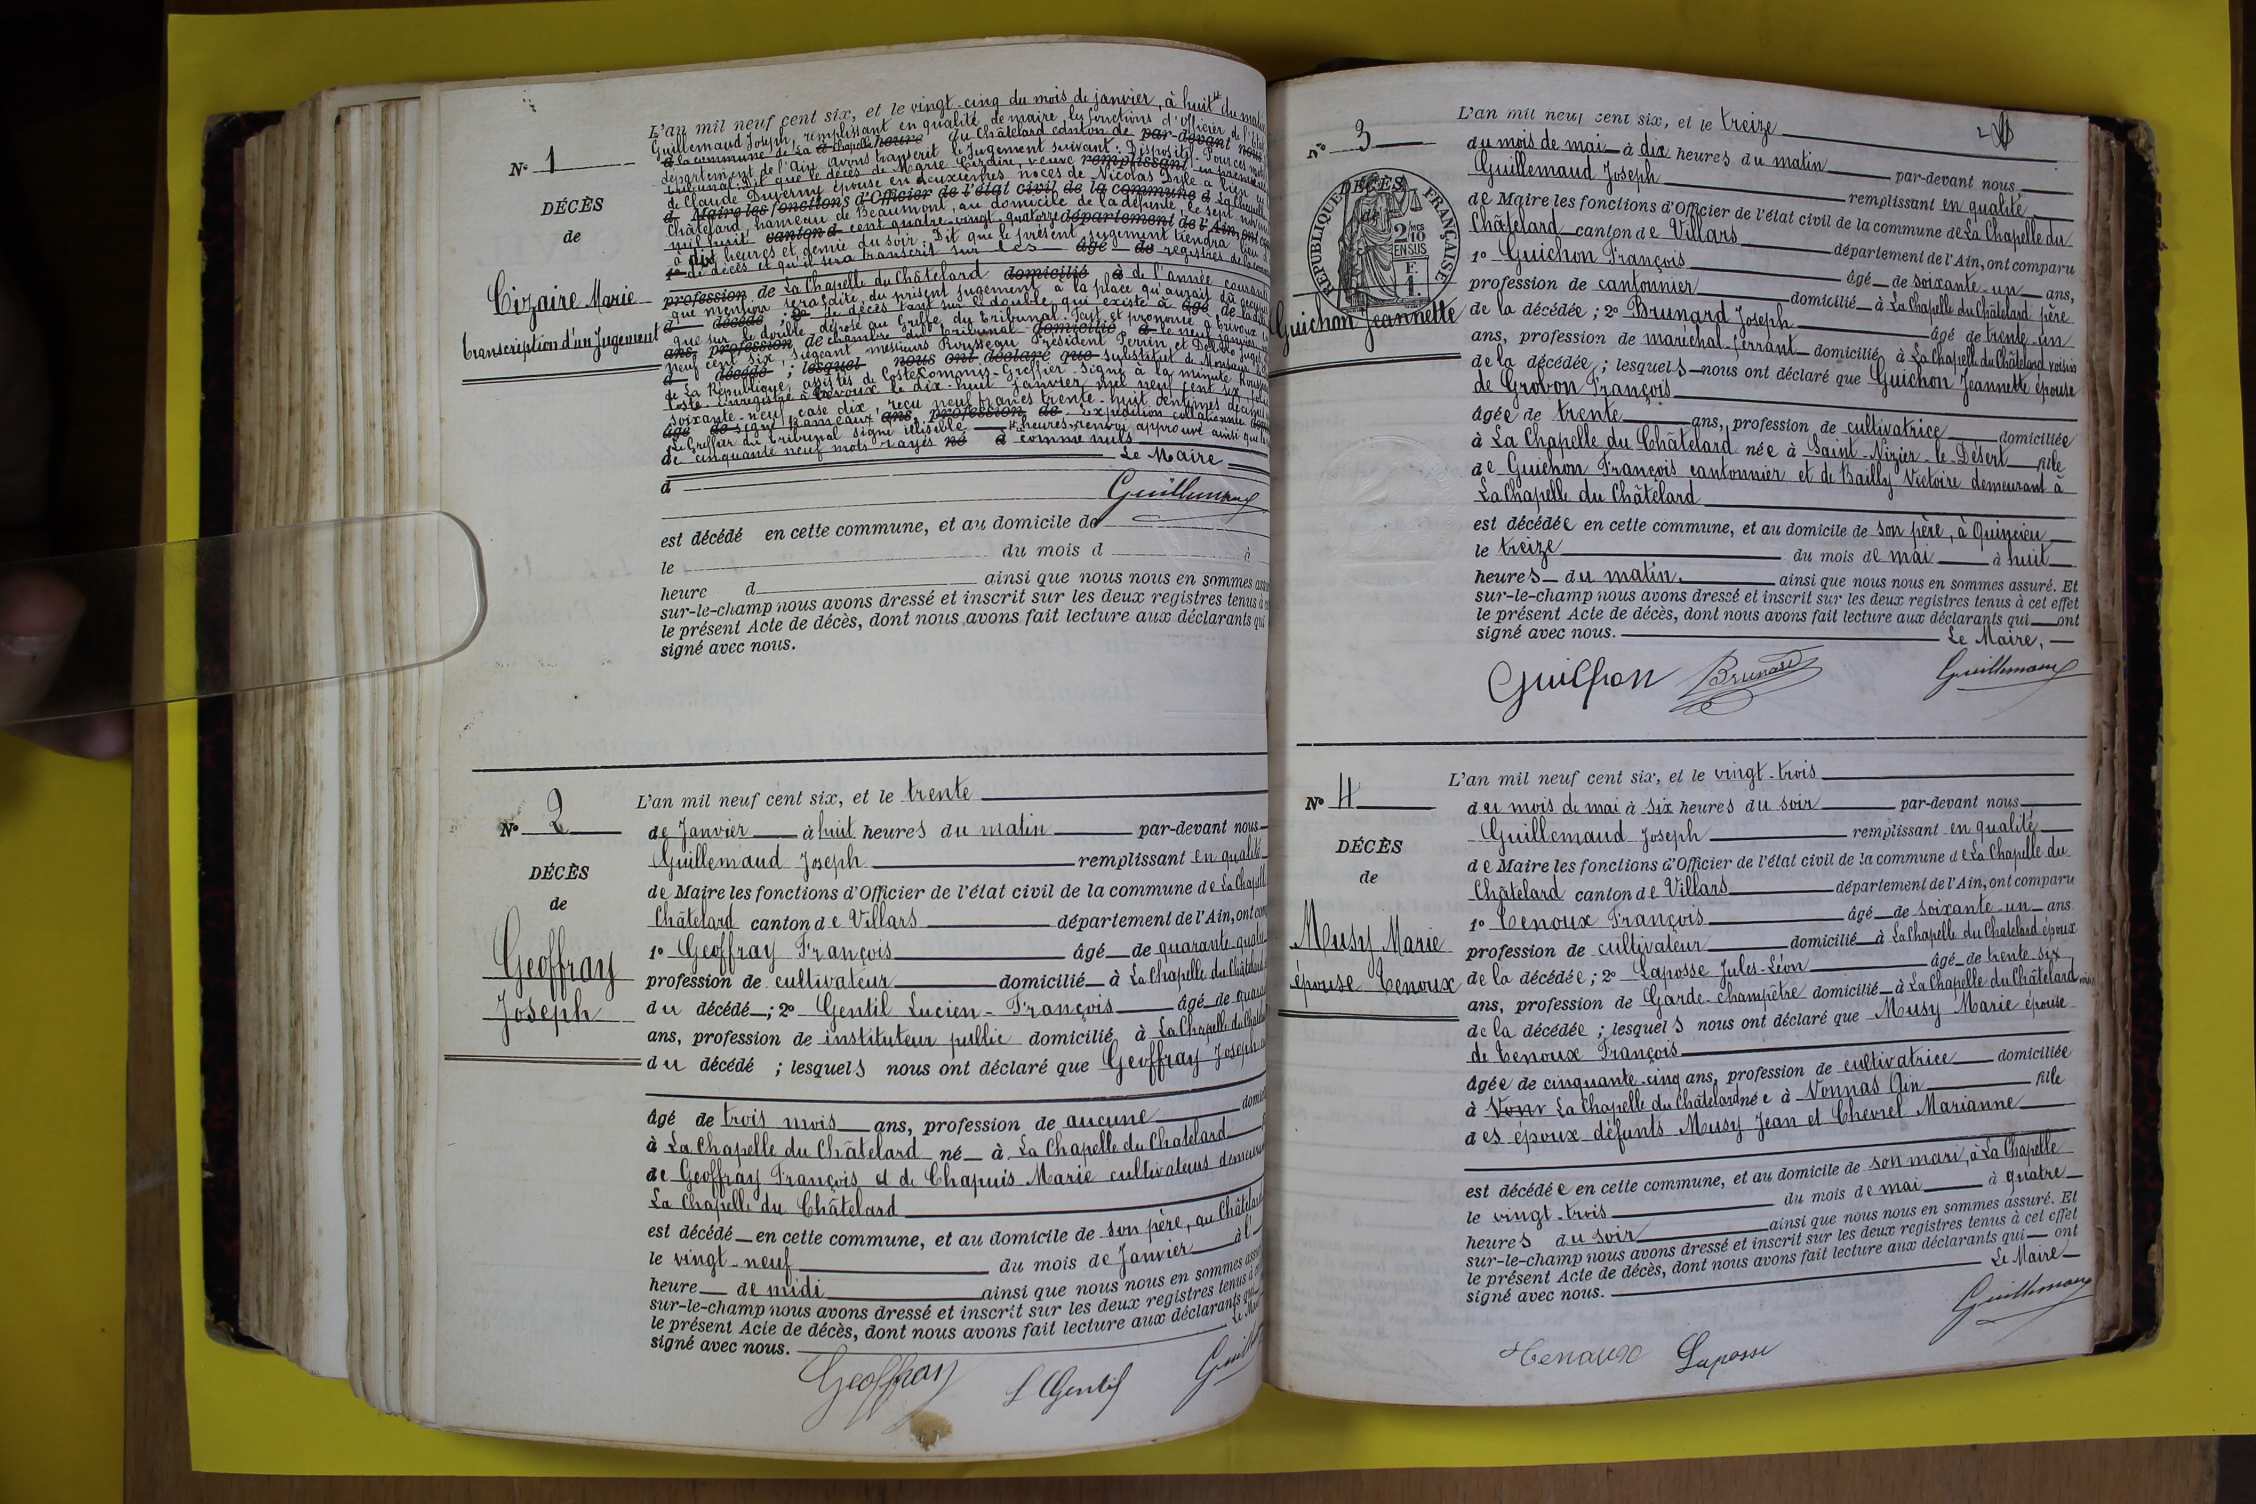 N° 1
DÉCÈS
de
Cizaire Marie
transcription d'un Jugement
L'an mil neuf cent six, et le vingt-cinq du mois de janvier, à huit du matin
Guillemaud Joseph, remplissant en qualité de maire les fonctions d'officier de l'Etat
à la commune de La Chapelle heure du Châtelard canton de par-devant nous
département de l'Ain avons transcrit le Jugement suivant: Dispositif. Pour ces motifs
tribunal: Dit que le décès de Marie remplissant
de Claude Duverny épouse en deuxièmes noces de Nicolas
d Maire les fonctions d'Officier de l'état civil de la commune d
Châtelard, hameau de Beaumont, au domicile de la défunte, le sept
mil huit canton d cent quatre-vingt-quatorze département de l'Ain, ont
à dix heures et demie du soir. Dit que le présent jugement tiendra lieu
1° de décès et qu'il sera transcrit sur les âgé de registres de la
profession de La Chapelle du Châtelard domicilié à de l'année courante
que mention sera faite du présent jugement à la place qu'aurait dû occuper
d décédé ; 2° de décès tant sur le double qui existe à âgé de la
que sur le double déposé au Greffe du tribunal. Fait et prononcé à Trévoux
ans, profession de chambre du tribunal domicilié à le neuf janvier mil
neuf cent six, Siégeant messieurs Rousseau Président Perrin et
d décédé ; lesquel nous ont déclaré que substitut de Monsieur
de La République, assistés de Coste Commis-Greffier. Signé à la minute
Coste. Enregistré à Trévoux le dix-huit janvier mil neuf cent six, folio
soixante-neuf, case dix, reçu neuf francs trente-huit centimes décimes
âgé de signé Rameaux ans, profession de Expédition collationnée
Le Greffier du tribunal signé illisible heures, renvoi approuvé ainsi que
de cinquante neuf mots rayés né à comme nuls
Le Maire
d
Guillemaud
est décédé en cette commune, et au domicile de
le du mois d à
heure d ainsi que nous nous en sommes assu
sur-le-champ nous avons dressé et inscrit sur les deux registres tenus à c
le présent Acte de décès, dont nous avons fait lecture aux déclarants qui
signé avec nous.
N° 2
DÉCÈS
de
Geoffray
Joseph
L'an mil neuf cent six, et le trente
de Janvier à huit heures du matin par-devant nous
Guillemaud Joseph remplissant en qualité
de Maire les fonctions d'Officier de l'état civil de la commune de La Chapell
Châtelard canton de Villars département de l'Ain, ont com
1° Geoffray François âgé de quarante-quatre
profession de cultivateur domicilié à La Chapelle du Châtelard
du décédé ; 2° Gentil Lucien-François âgé de quara
ans, profession de instituteur public domicilié à La Chapelle du Châtel
du décédé ; lesquels nous ont déclaré que Geoffray Joseph
âgé de trois mois ans, profession de aucune domici
à La Chapelle du Châtelard né à La Chapelle du Châtelard
de Geoffray François et de Chapuis Marie cultivateurs demeura
La Chapelle du Châtelard
est décédé en cette commune, et au domicile de son père, au Châtelard
le vingt-neuf du mois de Janvier à l'
heure de midi ainsi que nous nous en sommes assu
sur-le-champ nous avons dressé et inscrit sur les deux registres tenus à c
le présent Acte de décès, dont nous avons fait lecture aux déclarants qui
signé avec nous. Le Mai
Geoffray L Gentil Guill
N° 3
DÉCÈS
de
RÉPUBLIQUE FRANÇAISE
2/10 EN SUS
F. 1.
Guichon Jeannette
L'an mil neuf cent six, et le treize
du mois de mai à dix heures du matin par-devant nous
Guillemaud Joseph remplissant en qualité
de Maire les fonctions d'Officier de l'état civil de la commune de La Chapelle du
Châtelard canton de Villars département de l'Ain, ont comparu
1° Guichon François âgé de soixante-un ans,
profession de cantonnier domicilié à La Chapelle du Châtelard père
de la décédée ; 2° Brunard Joseph âgé de trente-un
ans, profession de maréchal-ferrant domicilié à La Chapelle du Châtelard voisin
de la décédée ; lesquels nous ont déclaré que Guichon Jeannette épouse
de Grobon François
âgée de trente ans, profession de cultivatrice domiciliée
à La Chapelle du Châtelard née à Saint-Nizier-le-Désert fille
de Guichon François cantonnier et de Bailly Victoire demeurant à
La Chapelle du Châtelard
est décédée en cette commune, et au domicile de son père, à Quincieu
le treize du mois de mai à huit
heures du matin. ainsi que nous nous en sommes assuré. Et
sur-le-champ nous avons dressé et inscrit sur les deux registres tenus à cet effet
le présent Acte de décès, dont nous avons fait lecture aux déclarants qui ont
signé avec nous. Le Maire,
Guichon Brunard Guillemaud
N° 4
DÉCÈS
de
Musy Marie
épouse Tenoux
L'an mil neuf cent six, et le vingt-trois
du mois de mai à six heures du soir par-devant nous
Guillemaud Joseph remplissant en qualité
de Maire les fonctions d'Officier de l'état civil de la commune de La Chapelle du
Châtelard canton de Villars département de l'Ain, ont comparu
1° Tenoux François âgé de soixante-un ans
profession de cultivateur domicilié à La Chapelle du Châtelard époux
de la décédée ; 2° Laposse Jules-Léon âgé de trente-six
ans, profession de Garde-champêtre domicilié à La Chapelle du Châtelard
de la décédée ; lesquels nous ont déclaré que Musy Marie épouse
de Tenoux François
âgée de cinquante-cinq ans, profession de cultivatrice domiciliée
à Vonn La Chapelle du Châtelard née à Vonnas Ain fille
des époux défunts Musy Jean et Chevrel Marianne
est décédée en cette commune, et au domicile de son mari, à La Chapelle
le vingt-trois du mois de mai à quatre
heures du soir ainsi que nous nous en sommes assuré. Et
sur-le-champ nous avons dressé et inscrit sur les deux registres tenus à cet effet
le présent Acte de décès, dont nous avons fait lecture aux déclarants qui ont
signé avec nous. Le Maire
Guillemaud
Tenoux Laposse